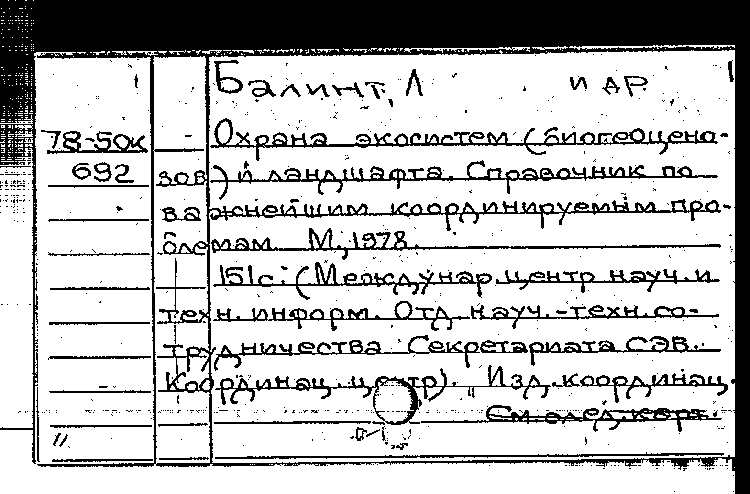 Балинт, Л и др.
78-50к Охрана экосистем (биогеоцено-
692 зов) и ландшафта. Справочник по
важнейшим координируемым про-
блемам М., 1978.
151с. (Междунар. центр науч. и
техн. информ. Отд. науч.-техн. со-
трудничества Секретариата СЭВ.
Координац. центр). Изд. координац.
См. след. карт.